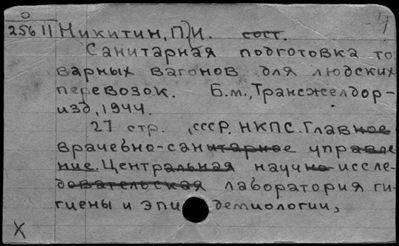 О
25611 Никитин, П.И. сост.
4
Санитарная подготовка то
варных вагонов для людских
перевозок. Б.м., Трансжелдор-
изд, 1944.
27 стр. (СССР. НКПС. Главное
врачебно-санитарное управле
ние. Центральная научно иссле-
довательская лаборатория ги-
гиены и эпидемиологии,
X